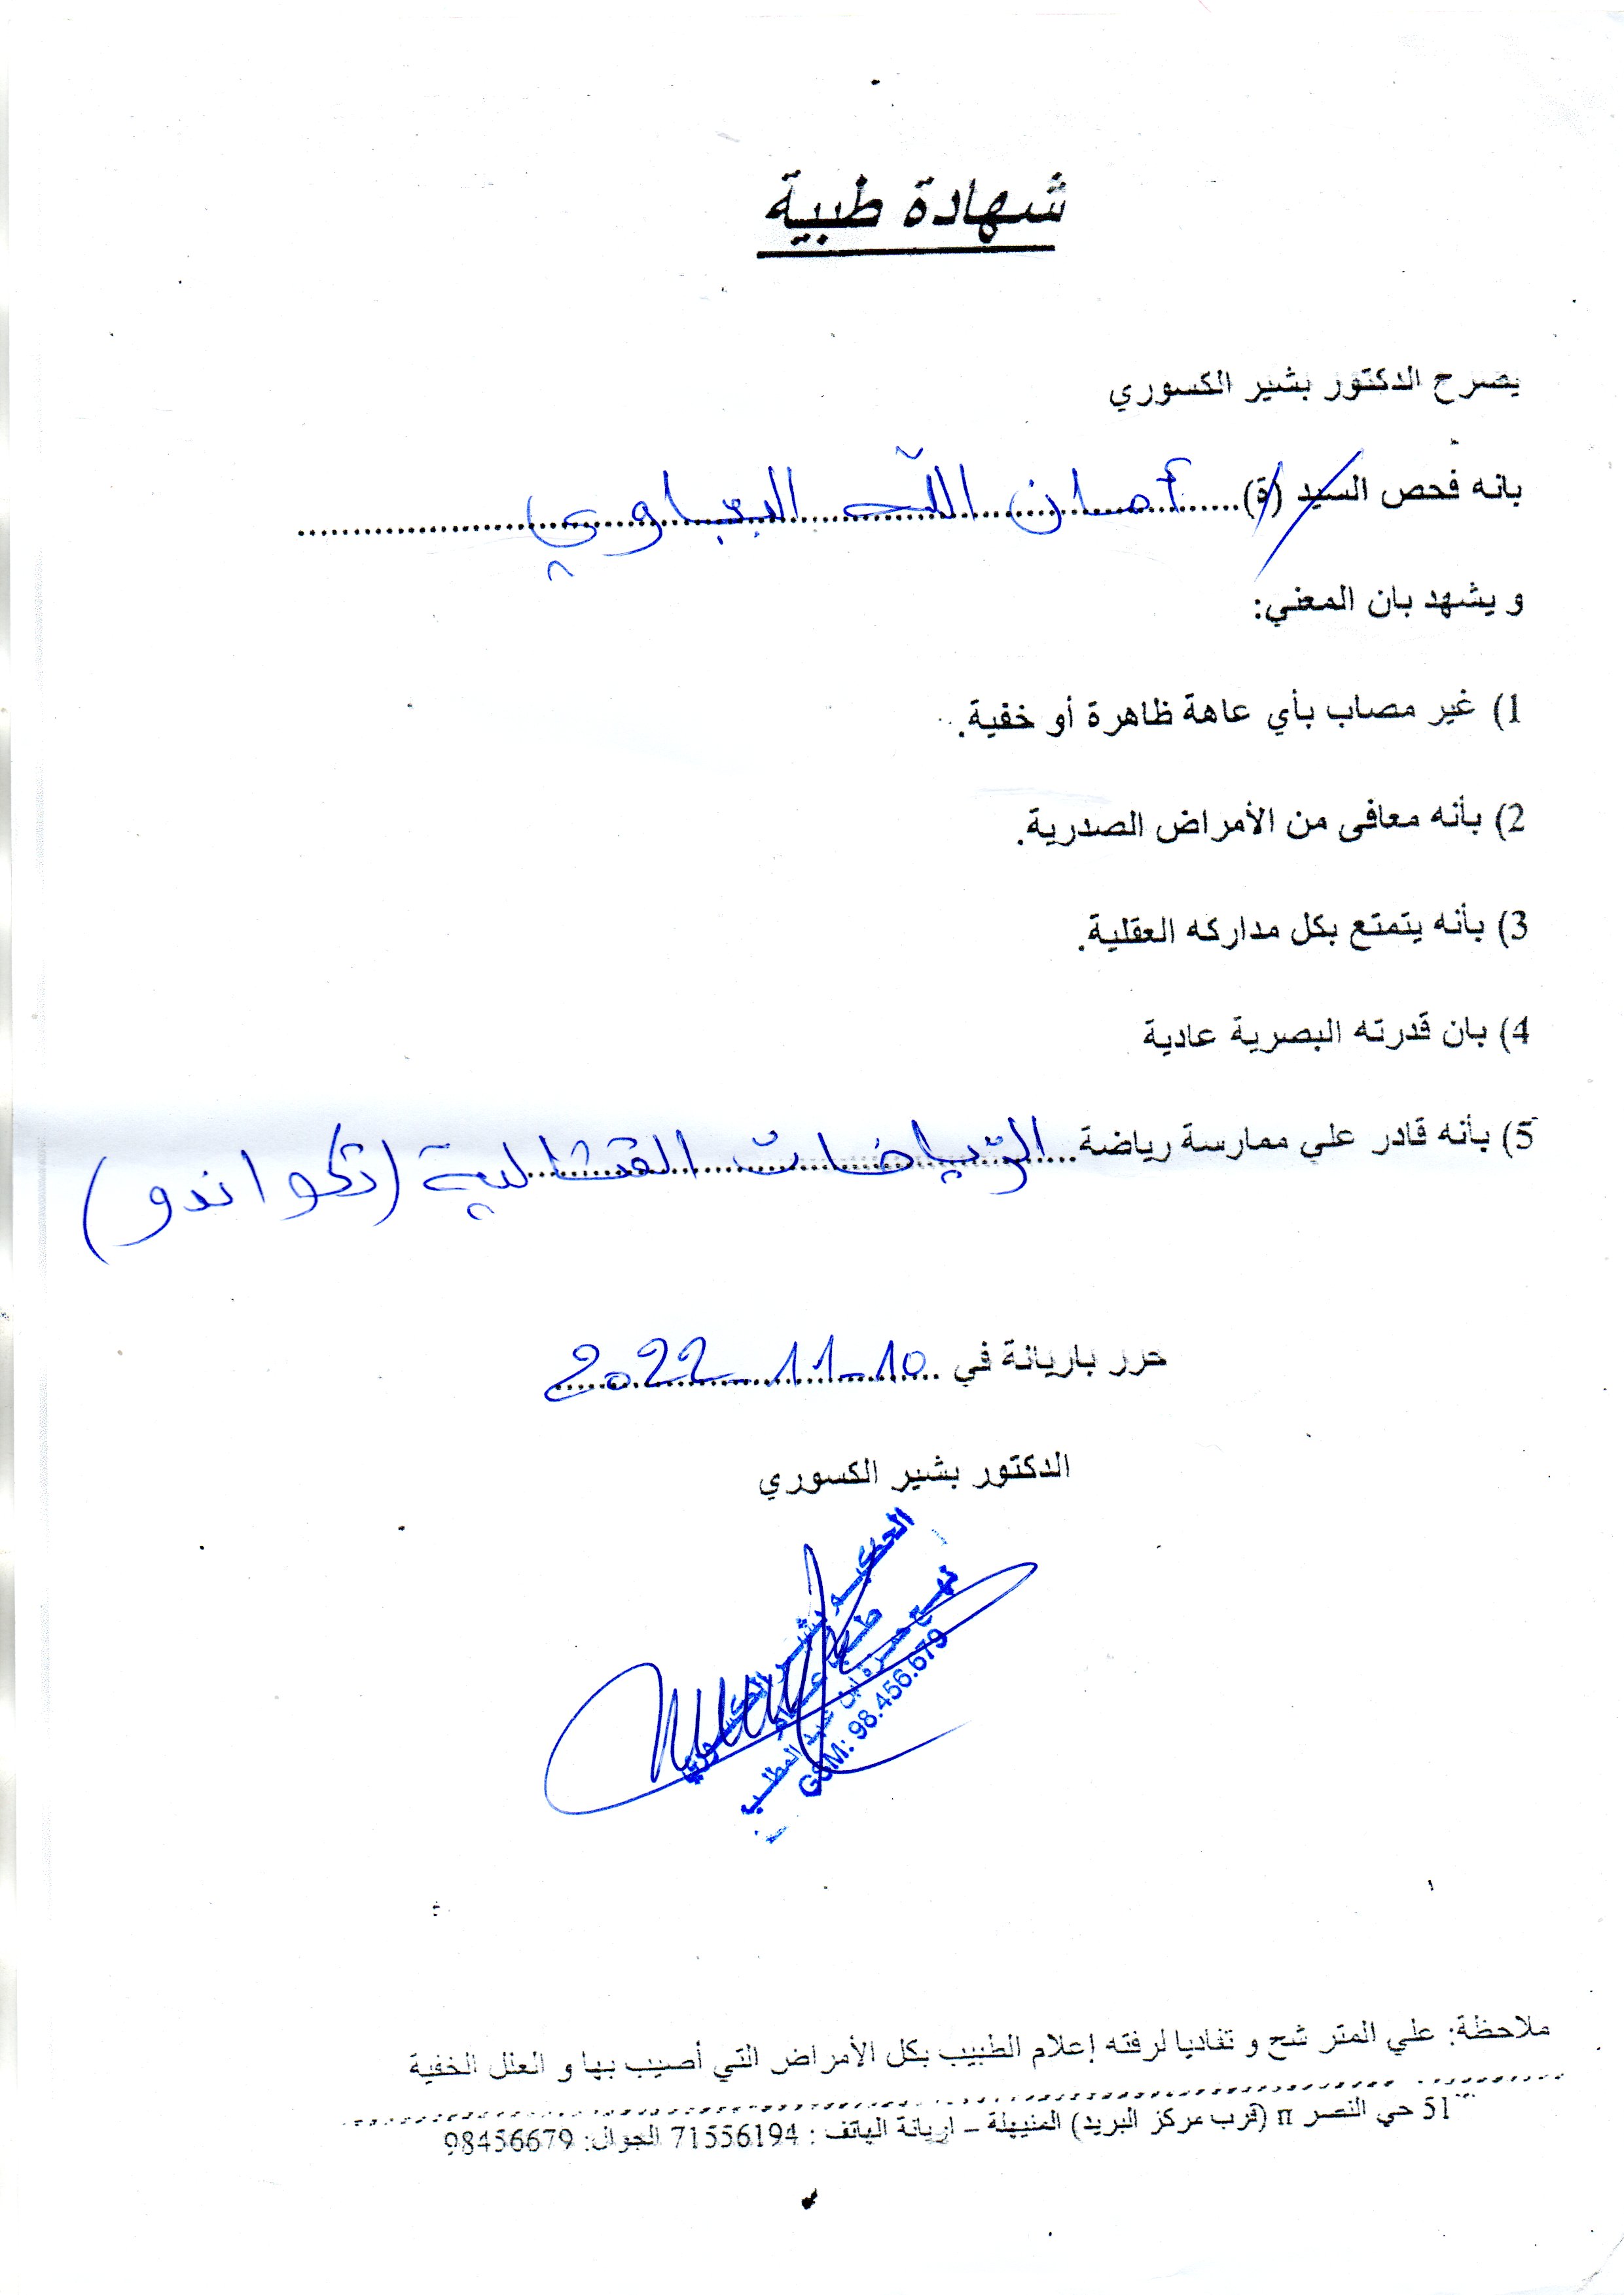 شهادة طبية
يصرح الدكتور بشير الكسوري
بانه فحص السيد (ة) أمان الله البعّاوي
و يشهد بان المعني:
1) غير مصاب بأي عاهة ظاهرة أو خفية.
2) بأنه معافى من الأمراض الصدرية.
3) بأنه يتمتع بكل مداركه العقلية.
4) بان قدرته البصرية عادية
5) بأنه قادر علي ممارسة رياضة الرّياضات القتالية (تكواندو)
حرر باريانة في 10-11-2022
الدكتور بشير الكسوري
الحكيم بشير الكسوري
طبيب عام
نهج حمزة ابن عبد المطلب
GSM: 98.456.679
ملاحظة: علي المتر شح و تفاديا لرفته إعلام الطبيب بكل الأمراض التي أصيب بها و العلل الخفية
51 حي النصر II (قرب مركز البريد) المنيهلة – اريانة الهاتف : 71556194 الجوال: 98456679